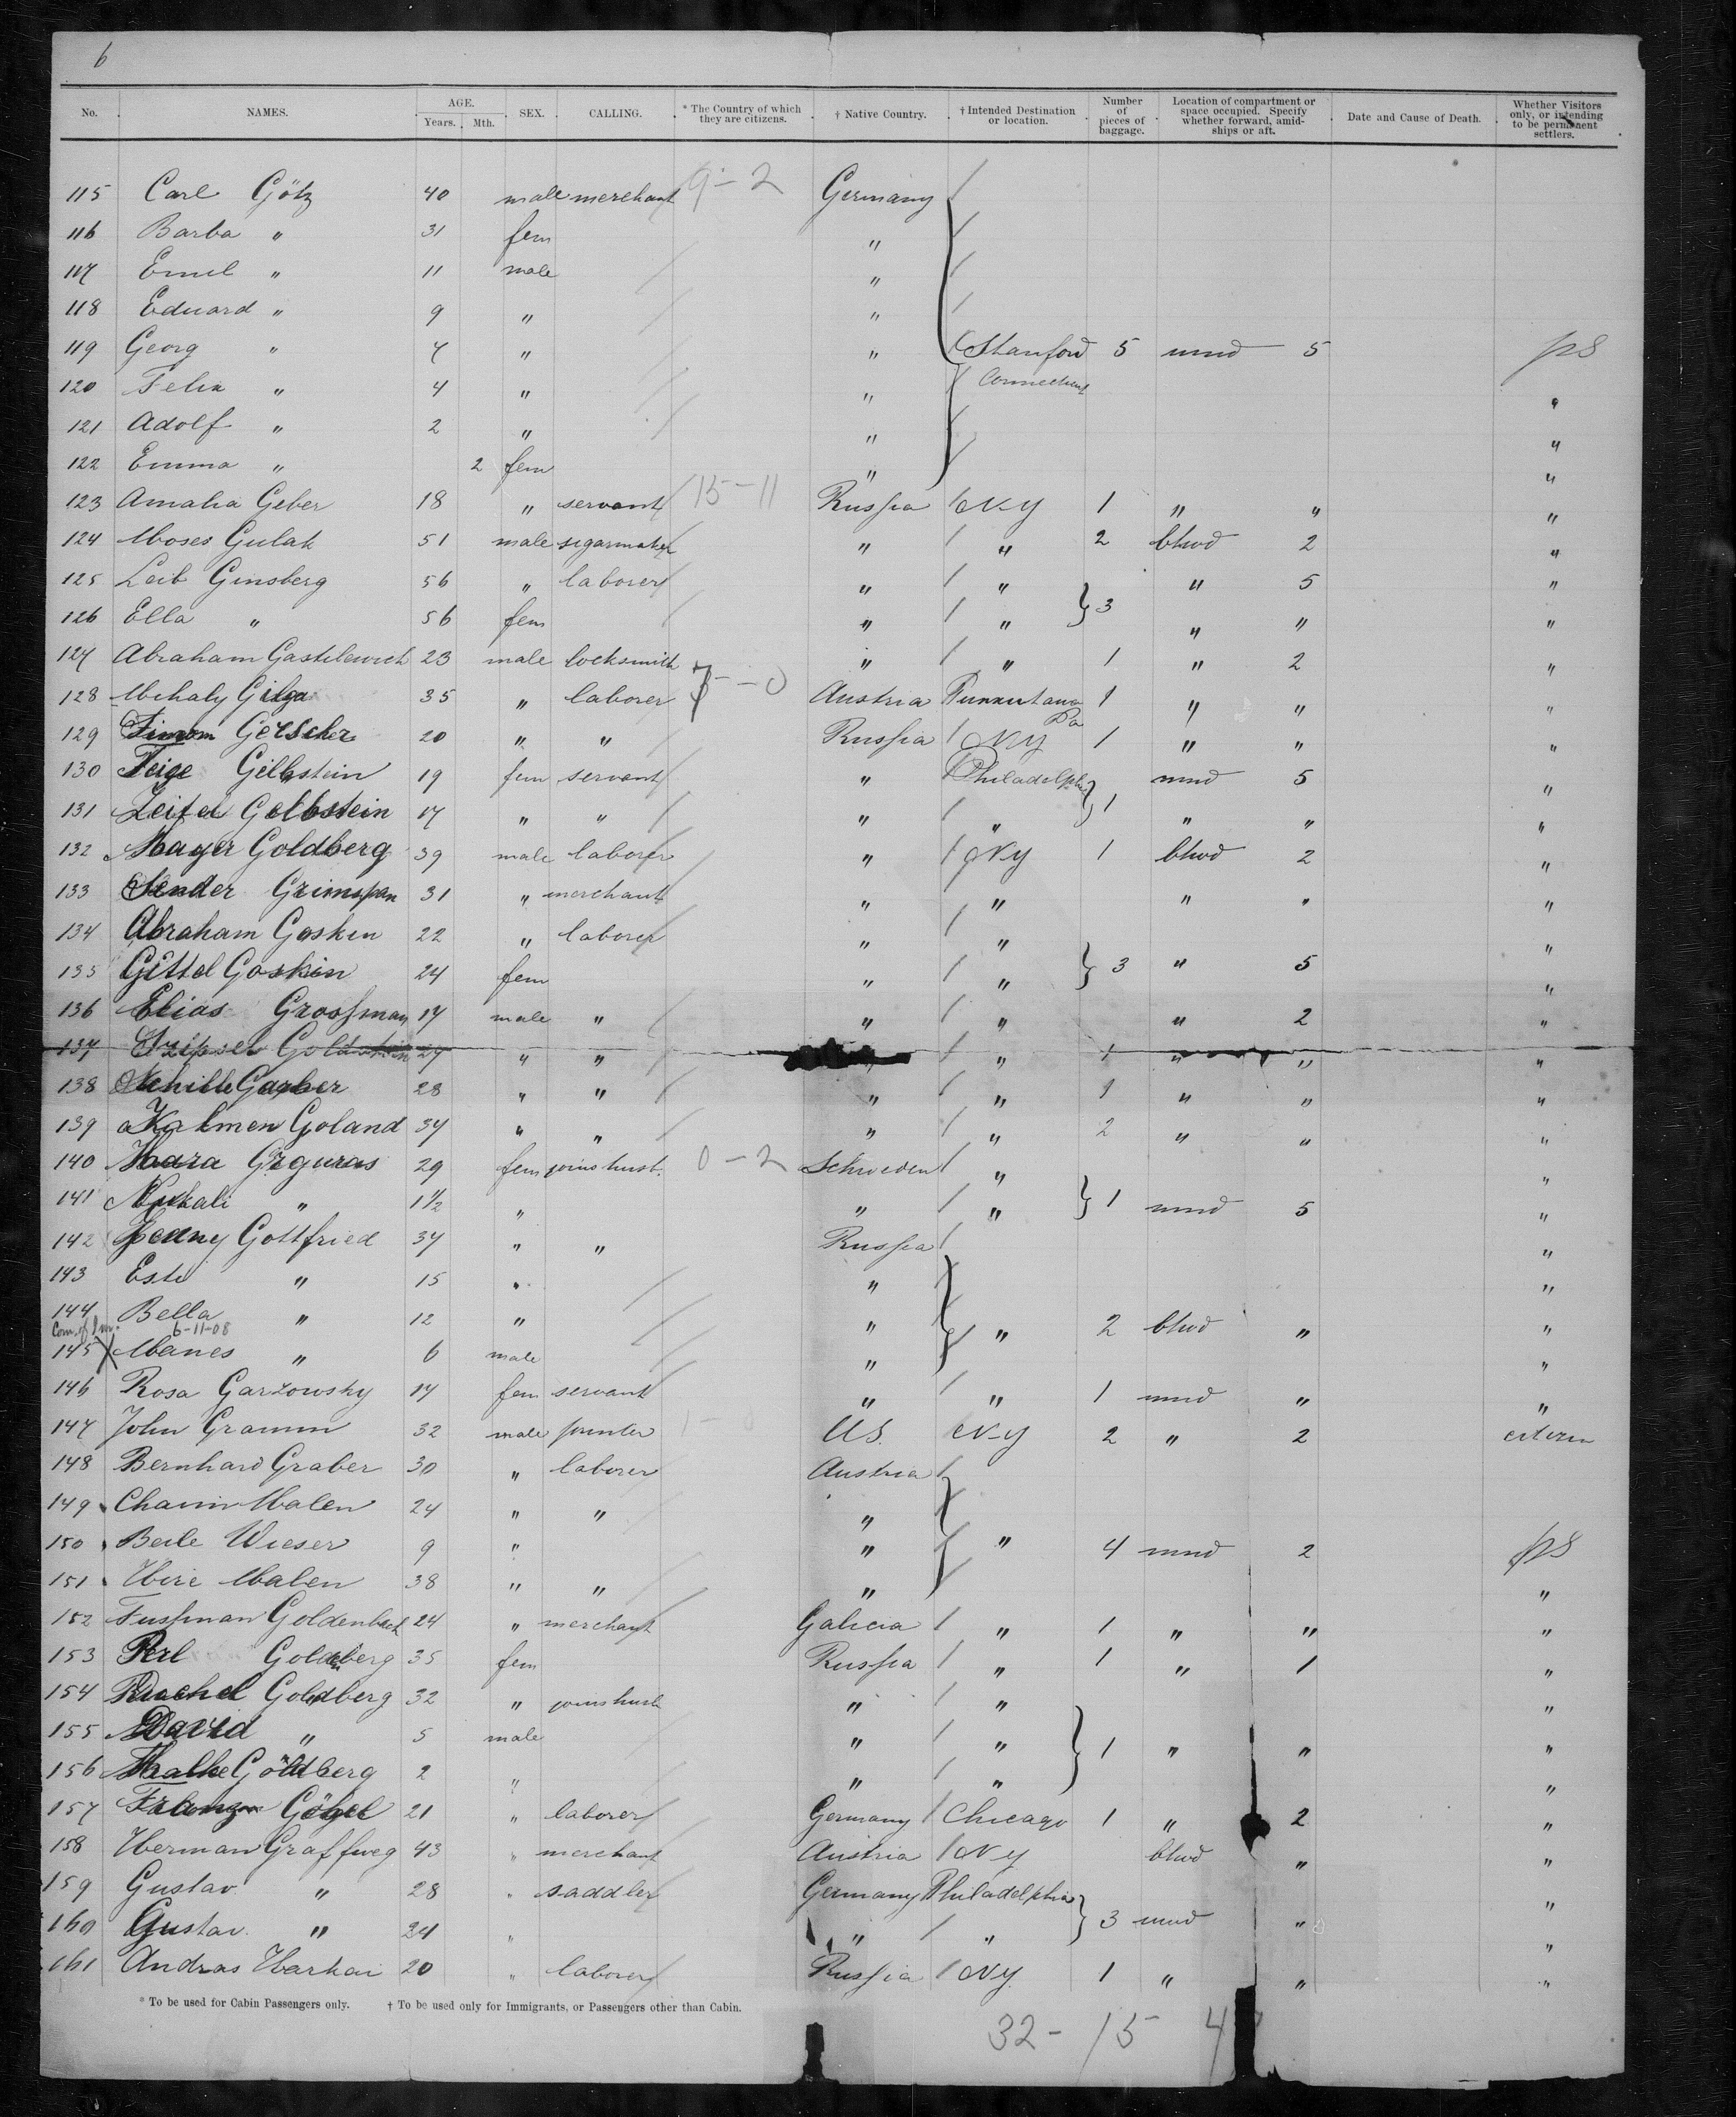 6
No. NAMES. AGE. Years. Mth. SEX. CALLING. * The Country of which they are citizens. † Native Country. † Intended Destination or location. Number of pieces of baggage. Location of compartment or space occupied. Specify whether forward, amidships or aft. Date and Cause of Death. Whether Visitors only, or intending to be permanent settlers.
115 Carl Götz 40 male merchant 9-2 Germany /
116 Barba " 31 fem " /
117 Emil " 11 male " /
118 Eduard " 9 " " /
119 Georg " 7 " " / Stanford 5 mmd 5 ps
120 Felix " 4 " " / Connecticut "
121 Adolf " 2 " " / "
122 Emma " 2 fem " / "
123 Amalia Geber 18 " servant 15-11 Russia / NY 1 " " "
124 Moses Gulak 51 male segarmaker " / " 2 bhwd 2 "
125 Leib Ginsberg 56 " laborer " / " " 5 "
126 Ella " 56 fem " / " 3 " " "
127 Abraham Gastilewich 23 male locksmith " / " 1 " 2 "
128 Mihaly Gilga 35 " laborer Austria 1 " " "
Pa
129 20 " " Russia / NY 1 " " "
130 Feige Gelbstein 19 fem servant " Philadelph mmd 5 "
131 Zeitel Gelbstein 17 " " " / " 1 " " "
132 Mayer Goldberg 39 male laborer " / NY 1 bhwd 2 "
133 Sender Grinspan 31 " merchant " " " " "
134 Abraham Goskin 22 " laborer " / " "
135 Gittel Goskin 24 fem " / " 3 " 5 "
136 Elias Grossman 17 male " " / " " 2 "
137 27 " " " / " 1 " " "
138 Garber 28 " " " / " 1 " " "
139 Kalmen Goland 37 " " " / " 2 " " "
140 Mara Grguras 29 fem joins husb. 0-2 Schweden / " "
141 " 1½ " " / " 1 mmd 5 "
142 Jenny Gottfried 37 " " Russia / "
143 Este " 15 " " "
144 Bella " 12 " " " 2 bhwd " "
Com. of Im. 6-11-08
145 X Manes " 6 male " "
146 Rosa Garzowsky 17 fem servant " / " 1 mmd " "
147 John Gramm 32 male printer U.S. NY 2 " 2 citizen
148 Bernhard Graber 30 " laborer Austria /
149 Chaim Malen 24 " " "
150 Beile Wieser 9 " " " 4 mmd 2 ps
151 Hire Malen 38 " " " "
152 Fussman Goldenbach 24 " merchant Galicia / " 1 " " "
153 Perl Goldberg 35 fem Russia / " 1 " 1 "
154 Rachel Goldberg 32 " joins husb " / " "
155 David " 5 male " / " 1 " " "
156 Malke Goldberg 2 " " / " "
157 Göbel 21 " laborer Germany / Chicago 1 " 2 "
158 Herman Graffweg 43 " merchant Austria / NY bhwd " "
159 Gustav " 28 " saddler Germany Philadelphia "
160 Gustav " 24 " " / " 3 mmd " "
161 Andras Harkai 20 " laborer Russia / NY 1 " " "
* To be used for Cabin Passengers only. † To be used only for Immigrants, or Passengers other than Cabin.
32 - 15